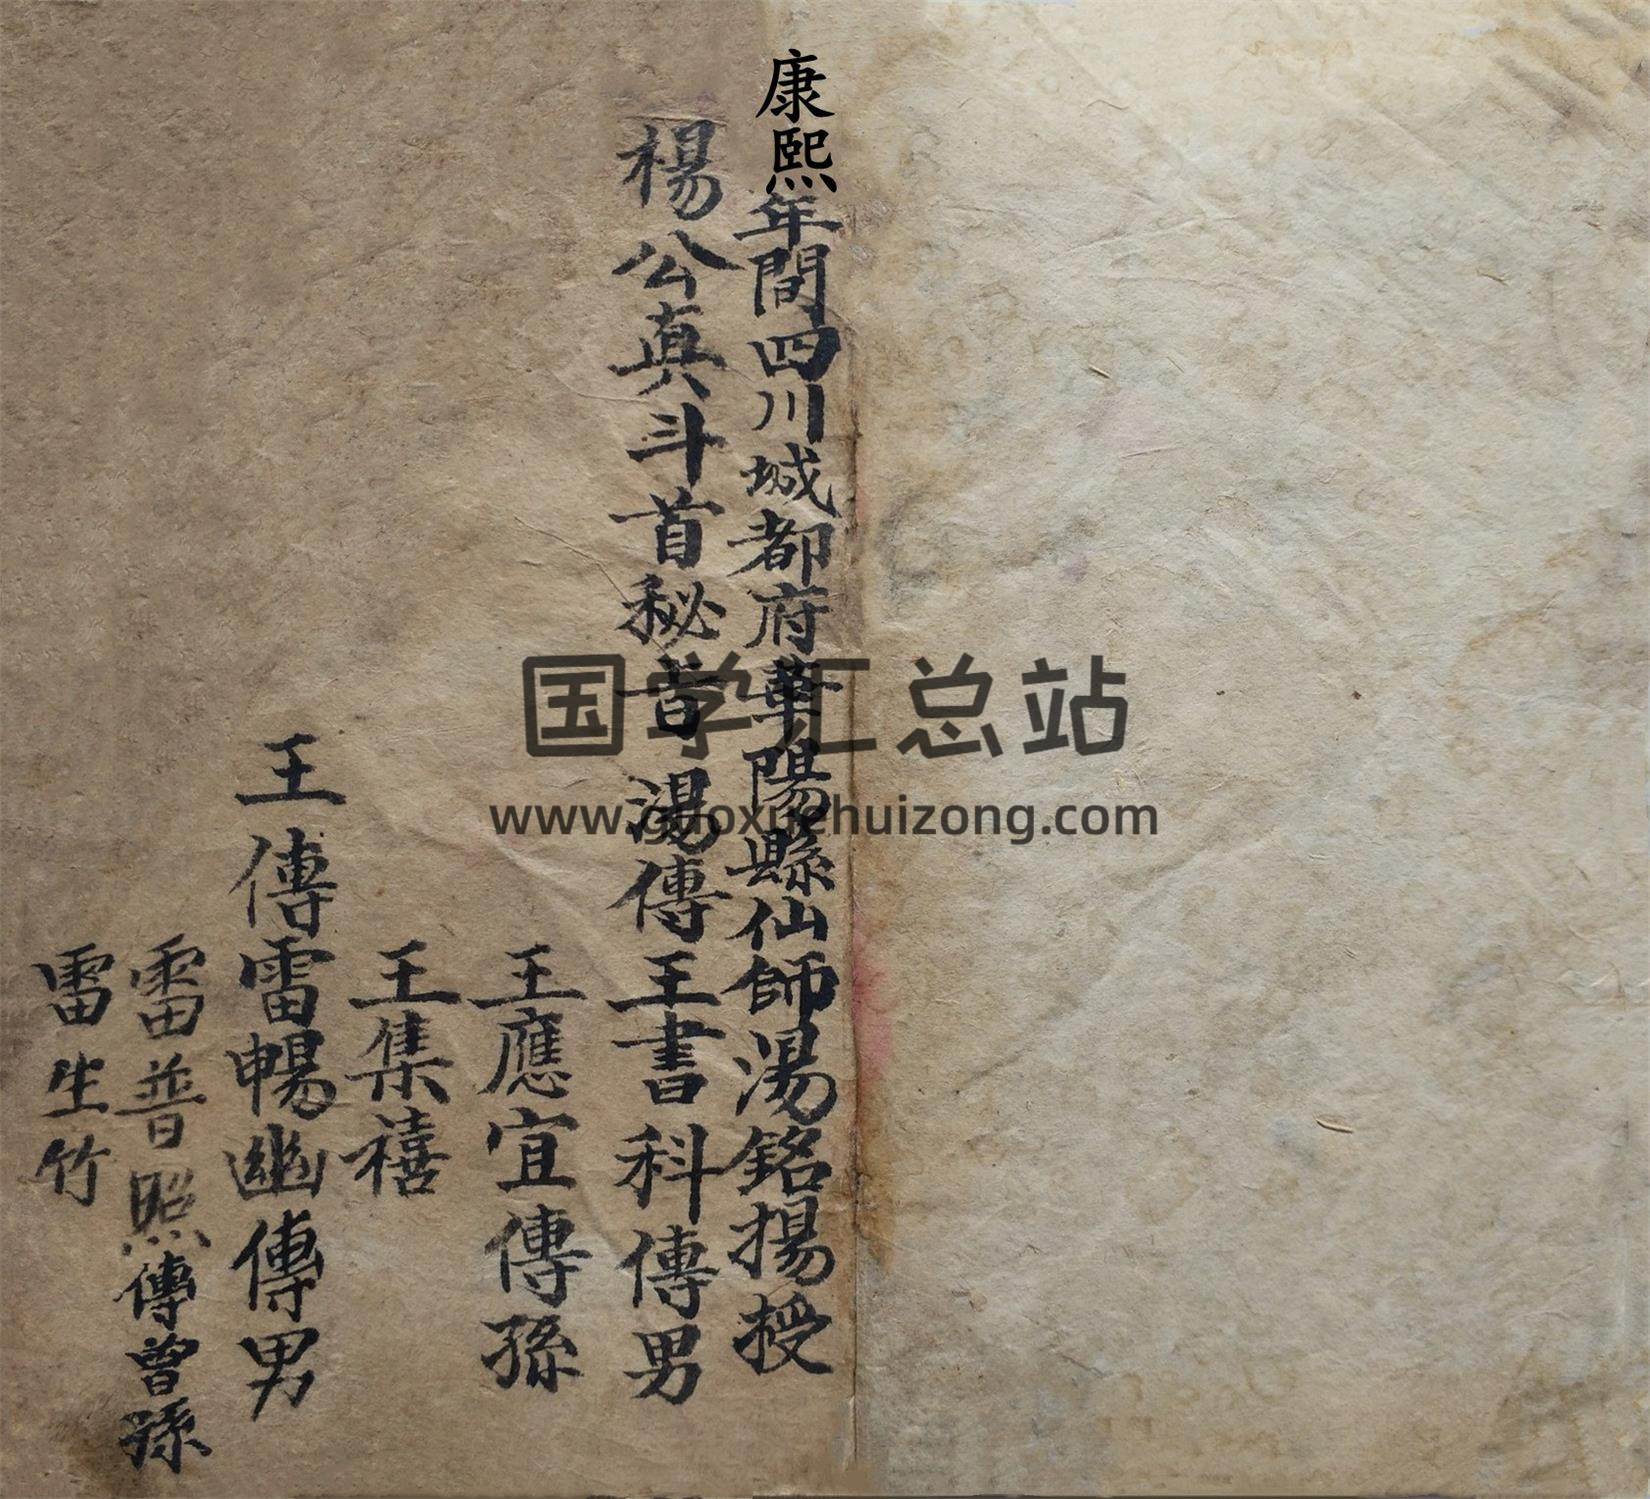 康熙年間四川城都府華陽縣仙師湯銘揚授
楊公真斗首秘旨湯傳王書科傳男
王應宜傳孫
王集禧
王傳雷暢幽傳男
雷普照傳曾孫
雷生竹
国学汇总站
www.guoxuehuizong.com